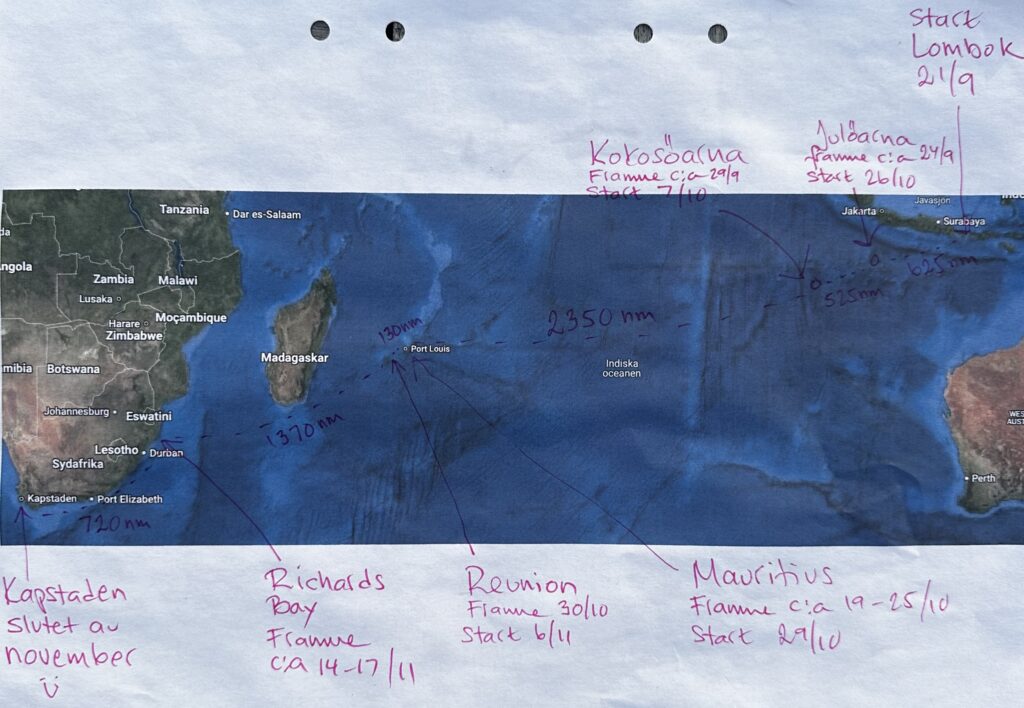 Start
Lombok
21/9
Julöarna
framme c:a 24/9
Start 26/10
Kokosöarna
Framme c:a 29/9
Start 7/10
Tanzania
Dar es-Salaam
Jakarta
Javasjön
Surabaya
ngola
Zambia
Malawi
Lusaka
625nm
525nm
Moçambique
Harare
Zimbabwe
2350 nm
130nm
Port Louis
Madagaskar
mibia
Botswana
Indiska
oceanen
Johannesburg
Eswatini
1370nm
WES
AUST
Lesotho
Durban
Sydafrika
Perth
Kapstaden
Port Elizabeth
720nm
Kapstaden
slutet av
november
Richards
Bay
Framme
c:a 14-17/11
Reunion
Framme 30/10
Start 6/11
Mauritius
Framme c:a 19-25/10
Start 29/10